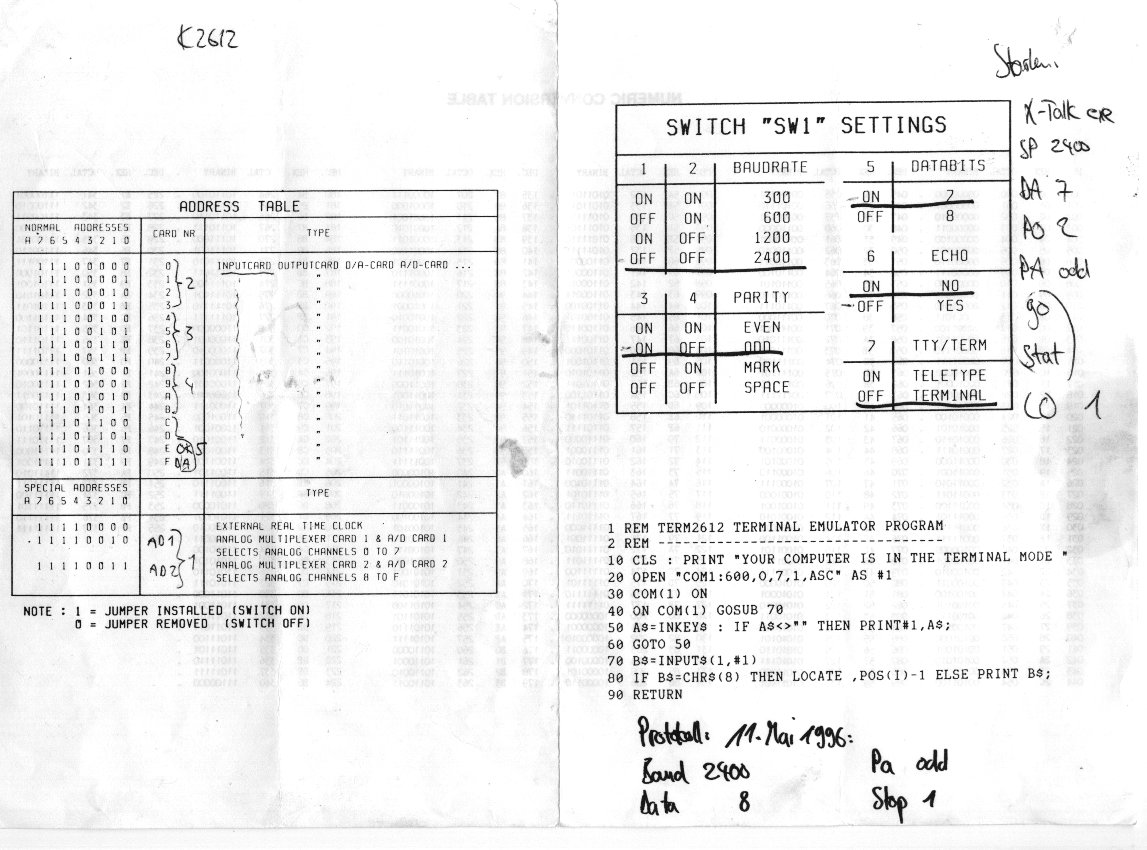 K2612
ADDRESS TABLE
NORMAL ADDRESSES
A 7 6 5 4 3 2 1 0
CARD NR
TYPE
1 1 1 0 0 0 0 0 0 INPUTCARD OUTPUTCARD D/A-CARD A/D-CARD ...
1 1 1 0 0 0 0 1 1 "
1 1 1 0 0 0 1 0 2 "
1 1 1 0 0 0 1 1 3 "
2
1 1 1 0 0 1 0 0 4 "
1 1 1 0 0 1 0 1 5 "
1 1 1 0 0 1 1 0 6 "
1 1 1 0 0 1 1 1 7 "
3
1 1 1 0 1 0 0 0 8 "
1 1 1 0 1 0 0 1 9 "
1 1 1 0 1 0 1 0 A "
1 1 1 0 1 0 1 1 B "
4
1 1 1 0 1 1 0 0 C "
1 1 1 0 1 1 0 1 D "
1 1 1 0 1 1 1 0 E "
1 1 1 0 1 1 1 1 F DA "
5
SPECIAL ADDRESSES
A 7 6 5 4 3 2 1 0
TYPE
1 1 1 1 0 0 0 0 EXTERNAL REAL TIME CLOCK
1 1 1 1 0 0 1 0 AD1 ANALOG MULTIPLEXER CARD 1 & A/D CARD 1
SELECTS ANALOG CHANNELS 0 TO 7
1 1 1 1 0 0 1 1 AD2 ANALOG MULTIPLEXER CARD 2 & A/D CARD 2
SELECTS ANALOG CHANNELS 8 TO F
1
NOTE : 1 = JUMPER INSTALLED (SWITCH ON)
0 = JUMPER REMOVED (SWITCH OFF)
SWITCH "SW1" SETTINGS
1 2 BAUDRATE
ON ON 300
OFF ON 600
ON OFF 1200
OFF OFF 2400
3 4 PARITY
ON ON EVEN
ON OFF ODD
OFF ON MARK
OFF OFF SPACE
5 DATABITS
ON 7
OFF 8
6 ECHO
ON NO
OFF YES
7 TTY/TERM
ON TELETYPE
OFF TERMINAL
Starten:
X-Talk
SP 2400
DA 7
PO 2
PA odd
go
Stat
CO 1
1 REM TERM2612 TERMINAL EMULATOR PROGRAM
2 REM ----------------------------------
10 CLS : PRINT "YOUR COMPUTER IS IN THE TERMINAL MODE "
20 OPEN "COM1:600,O,7,1,ASC" AS #1
30 COM(1) ON
40 ON COM(1) GOSUB 70
50 A$=INKEY$ : IF A$<>"" THEN PRINT#1,A$;
60 GOTO 50
70 B$=INPUT$(1,#1)
80 IF B$=CHR$(8) THEN LOCATE ,POS(I)-1 ELSE PRINT B$;
90 RETURN
Protokoll: 11. Mai 1996:
Baud 2400 Pa odd
Data 8 Stop 1